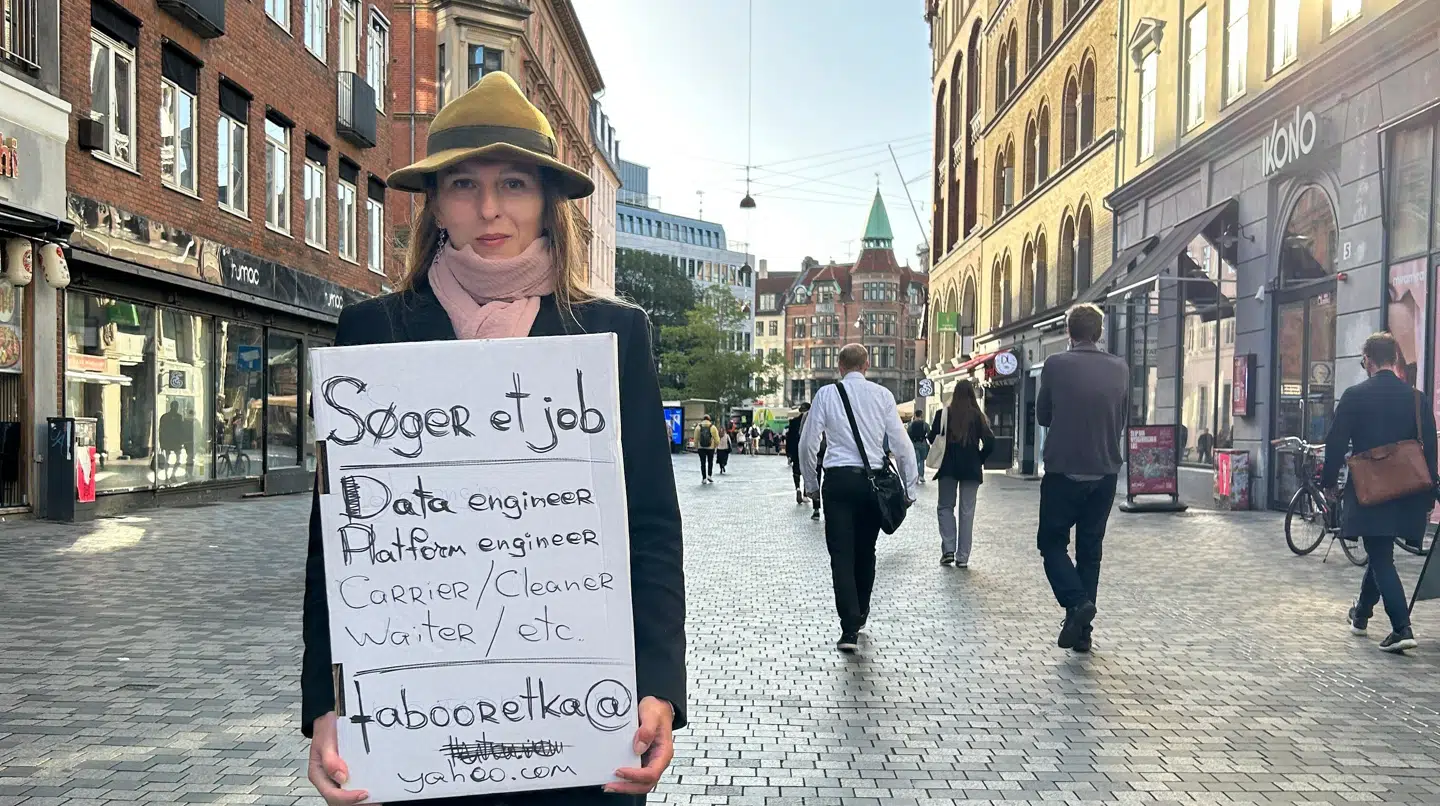 Søger et job
Data engineer
Platform engineer
Carrier/Cleaner
Waiter/etc.
tabooretka@
yahoo.com
IKONO
5